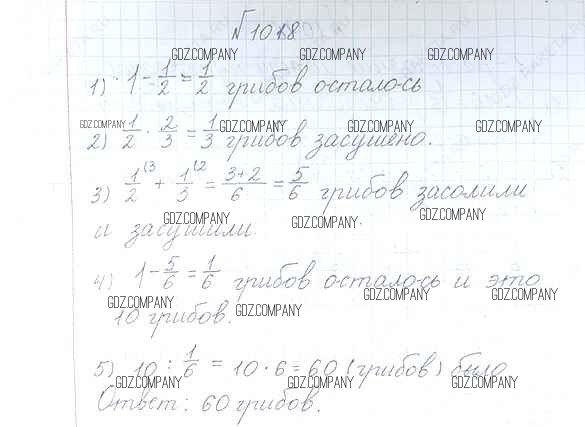 № 1018
GDZ.COMPANY GDZ.COMPANY GDZ.COMPANY
1) 1 - 1/2 = 1/2 грибов осталось
GDZ.COMPANY GDZ.COMPANY GDZ.COMPANY GDZ.COMPANY
2) 1/2 · 2/3 = 1/3 грибов засушено.
3) 1/2 (3 + 1/3 (2 = 3+2/6 = 5/6 грибов засолили
GDZ.COMPANY GDZ.COMPANY GDZ.COMPANY
и засушили.
4) 1 - 5/6 = 1/6 грибов осталось и это
GDZ.COMPANY GDZ.COMPANY GDZ.COMPANY GDZ.COMPANY
10 грибов.
5) 10 : 1/6 = 10 · 6 = 60 (грибов) было
GDZ.COMPANY GDZ.COMPANY GDZ.COMPANY
Ответ: 60 грибов.